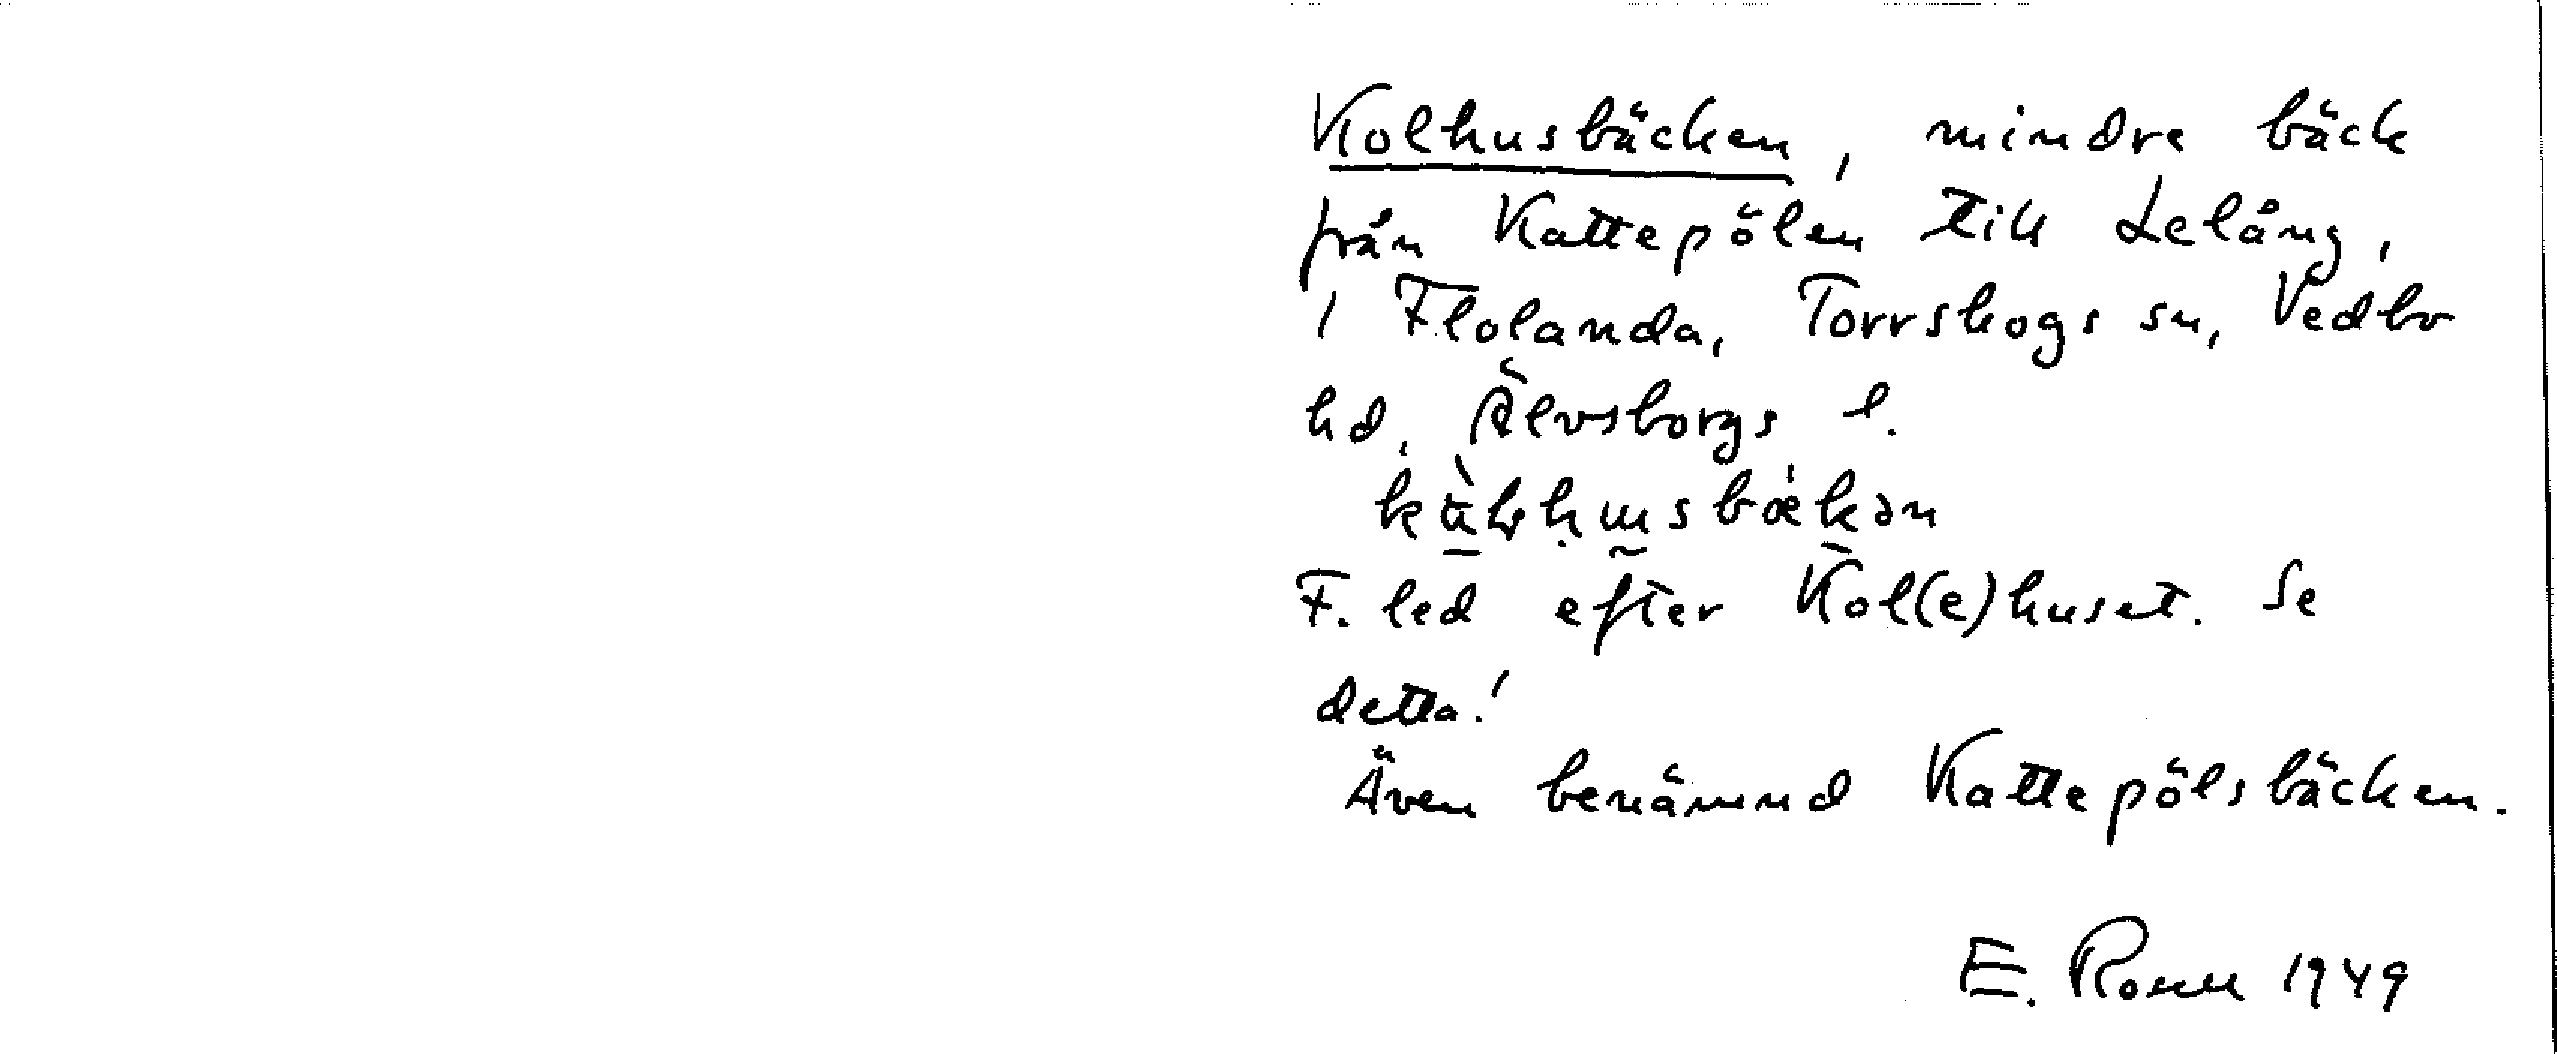 Kolhusbäcken, mindre bäck
från Kattepölen till Lelång,
i Flolanda, Torrskogs sn, Vedbo
hd, Älvsborgs l.
F. led efter Kol(e)huset. Se
detta!
Även benämnd Kattepölsbäcken.
E. Rosell 1949